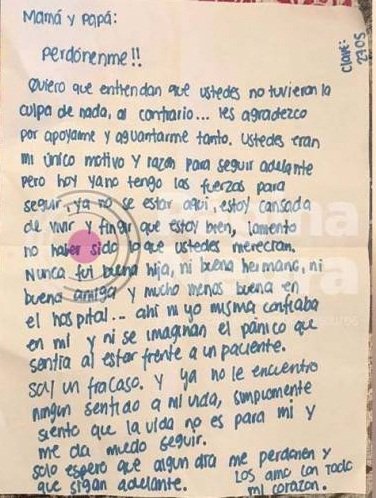 Mamá y Papá:
Perdónenme!!
Clave:
2705
Quiero que entiendan que ustedes no tuvieron la
culpa de nada, al contrario... les agradezco
por apoyarme y aguantarme tanto. Ustedes eran
mi único motivo y razón para seguir adelante
pero hoy ya no tengo las fuerzas para
seguir, ya no se estar aquí, estoy cansada
de vivir y fingir que estoy bien, lamento
no haber sido lo que ustedes merecían.
Nunca fui buena hija, ni buena hermana, ni
buena amiga y mucho menos buena en
el hospital... ahí ni yo misma confiaba
en mí y ni se imaginan el pánico que
sentía al estar frente a un paciente.
Soy un fracaso. Y ya no le encuentro
ningún sentido a mi vida, simplemente
siento que la vida no es para mí y
me da miedo seguir.
Solo espero que algún día me perdonen y
que sigan adelante. Los amo con todo
mi corazón.